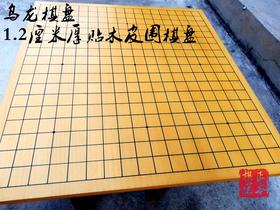 乌龙棋盘
1.2厘米厚贴木皮围棋盘